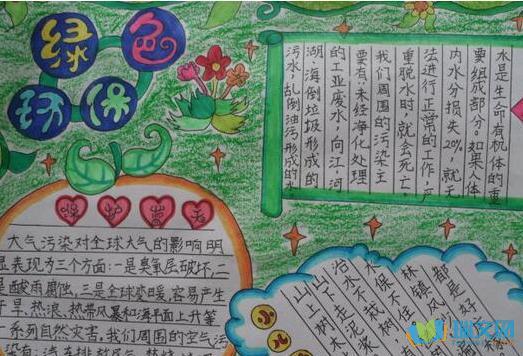 绿色
环保
水是生命有机体的重
要组成部分。如果人体
内水分损失20%，就无
法进行正常的工作，严
重脱水时，就会死亡。
我们周围的污染主
要有：未经净化处理
的工业废水，向江、河
湖、海倒垃圾形成的
污水，乱倒油污形成的水
保护蓝天
大气污染对全球大气的影响明
显表现为三个方面：一是臭氧层破坏，二
是酸雨腐蚀，三是全球变暖，容易产生
干旱、热浪、热带风暴和海平面上升等
一系列自然灾害。我们周围的空气污
染有：汽车排放
小儿
都是好